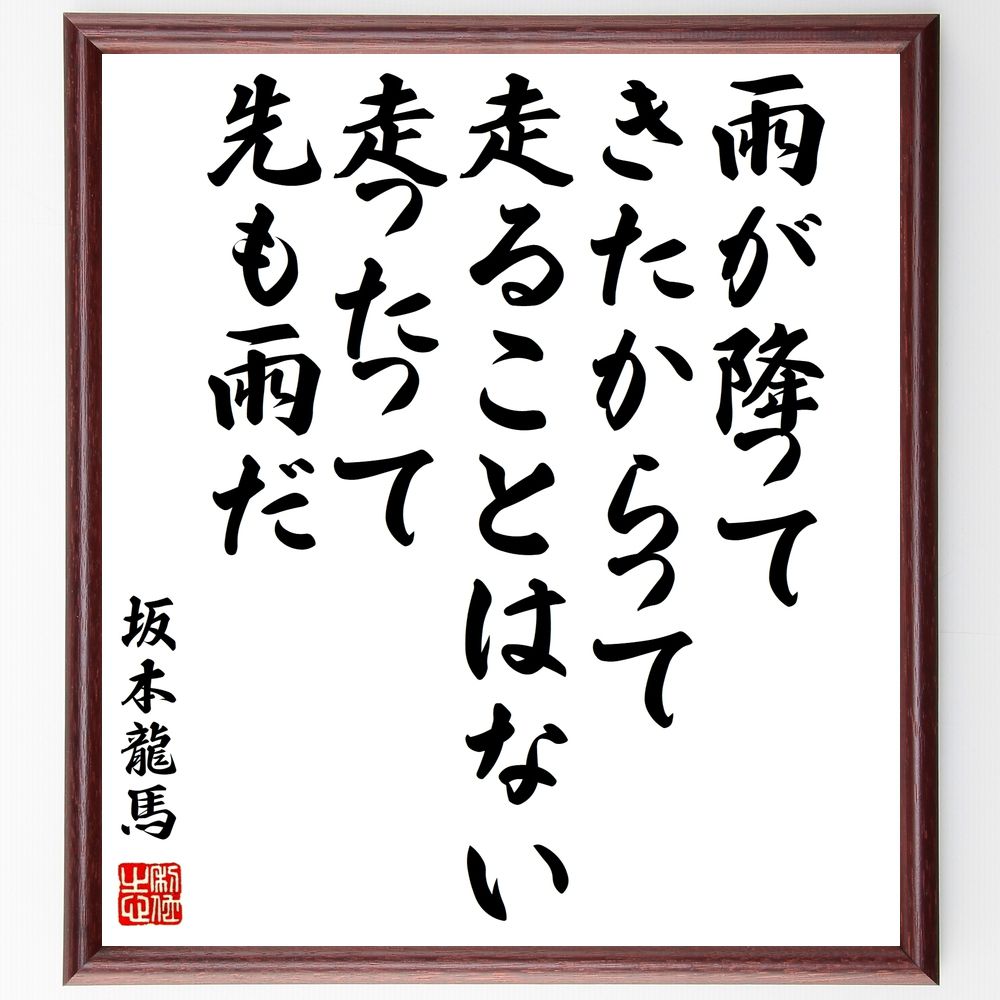 雨が降って
きたからって
走ることはない
走ったって
先も雨だ
坂本龍馬